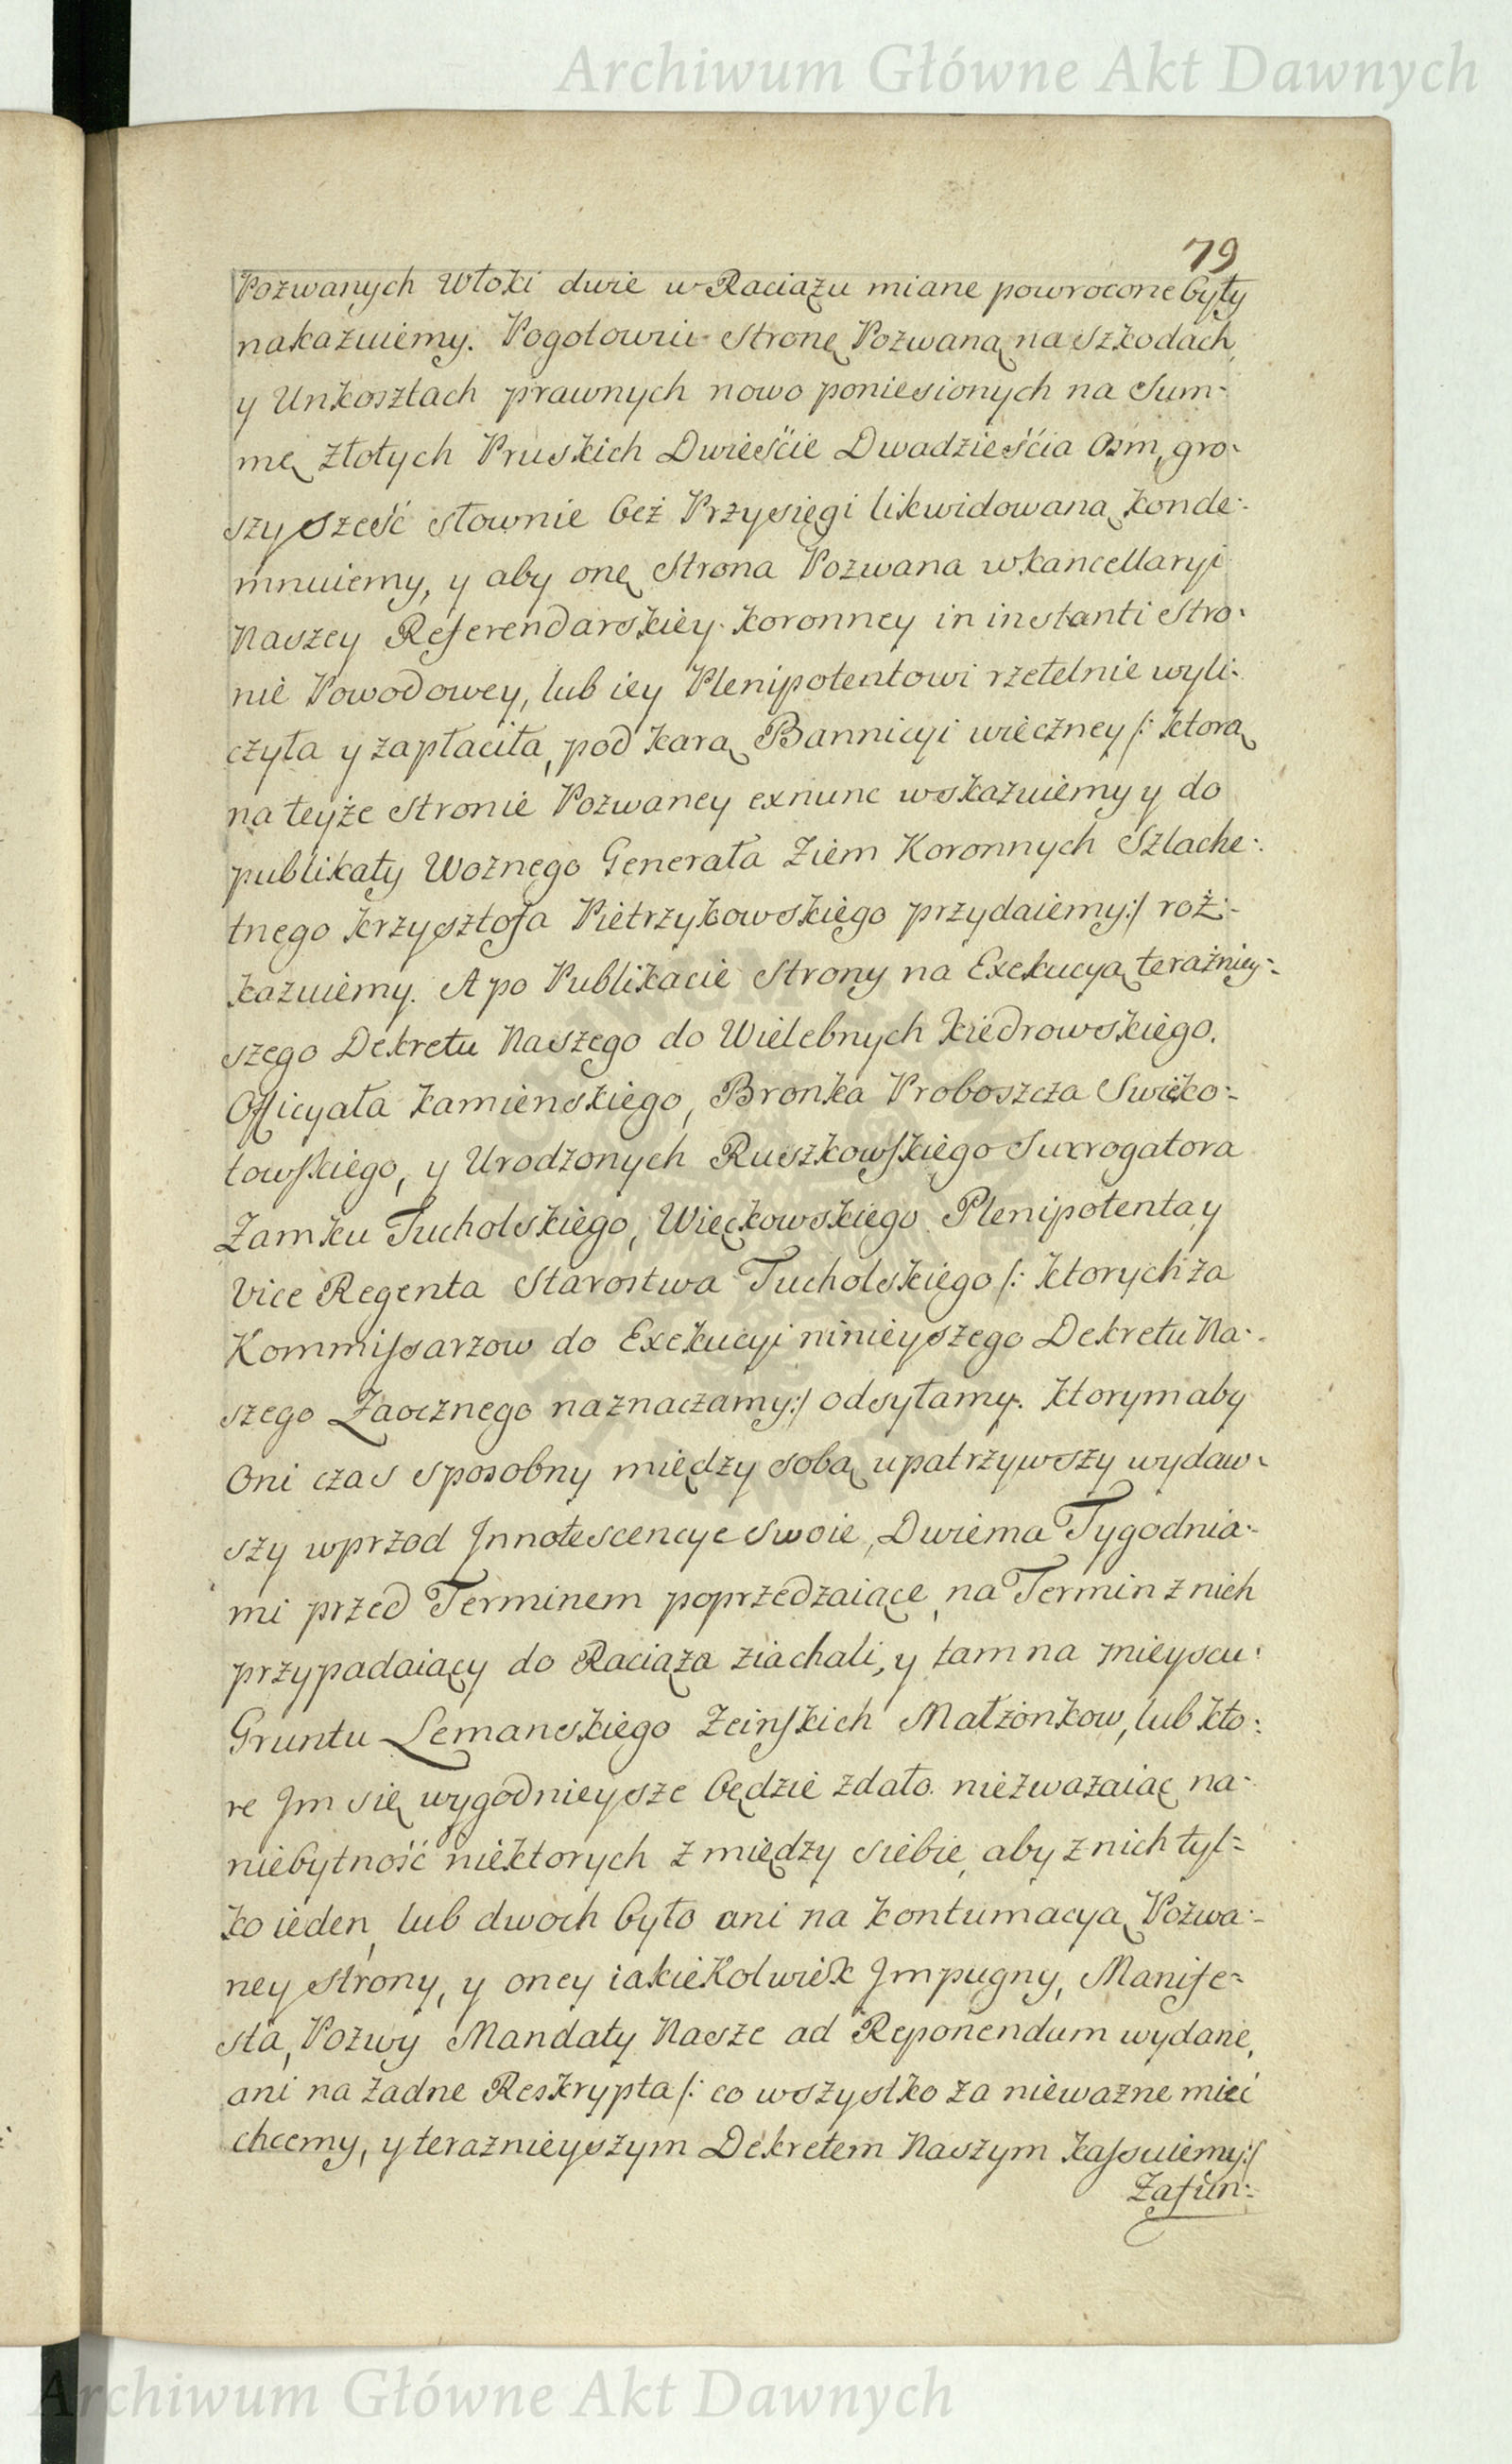 Archiwum Główne Akt Dawnych
79
Pozwanych Włoki dwie w Raciążu miane powrocone były
nakazuiemy. Pogotowiu Stronę Pozwaną na Szkodach
y Unkosztach prawnych nowo poniesionych na Sum-
mę Złotych Pruskich Dwieście Dwadzieścia Osm, gro-
szy sześć słownie bez Przysięgi likwidowaną konde-
mnuiemy, y aby onę Strona Pozwana w kancellaryi
Naszey Referendarskiey koronney in instanti Stro-
nie Powodowey, lub iey Plenipotentowi rzetelnie wyli-
czyła y zapłaciła, pod karą Bannicyi wieczney /: ktorą
na teyże Stronie Pozwaney exnunc wskazuiemy y do
publikaty Woznego Generała Ziem Koronnych Szlache-
tnego Krzysztofa Pietrzykowskiego przydaiemy :/ roz-
kazuiemy. A po Publikacie Strony na Exekucyą teraźniey-
szego Dekretu Naszego do Wielebnych Kiedrowskiego.
Officyała Kamienskiego, Bronka Proboszcza Swięko-
towskiego, y Urodzonych Ruszkowskiego Surrogatora
Zamku Tucholskiego, Więckowskiego Plenipotenta y
Vice Regenta Starostwa Tucholskiego /: ktorych za
Kommissarzow do Exekucyi ninieyszego Dekretu Na-
szego Zaocznego naznaczamy :/ odsyłamy. Ktorym aby
Oni czas sposobny między sobą upatrzywszy wydaw-
szy wprzod Innotescencye swoie, Dwiema Tygodnia-
mi przed Terminem poprzedzaiące, na Termin z nich
przypadaiący do Raciąża ziachali, y tam na mieyscu
Gruntu Lemanskiego Zeinskich Małżonkow, lub kto-
re Im się wygodnieysze będzie zdało. nie zważaiąc na
niebytność niektorych z między siebie, aby z nich tyl-
ko ieden, lub dwoch było ani na kontumacyą Pozwa-
ney Strony, y oney iakieKolwiek Impugny, Manife-
sta, Pozwy Mandaty Nasze ad Reponendum wydane,
ani na żadne Reskrypta /: co wszystko za nieważne mieć
chcemy, y teraźnieyszym Dekretem Naszym kassuiemy :/
Zafun-
Archiwum Główne Akt Dawnych